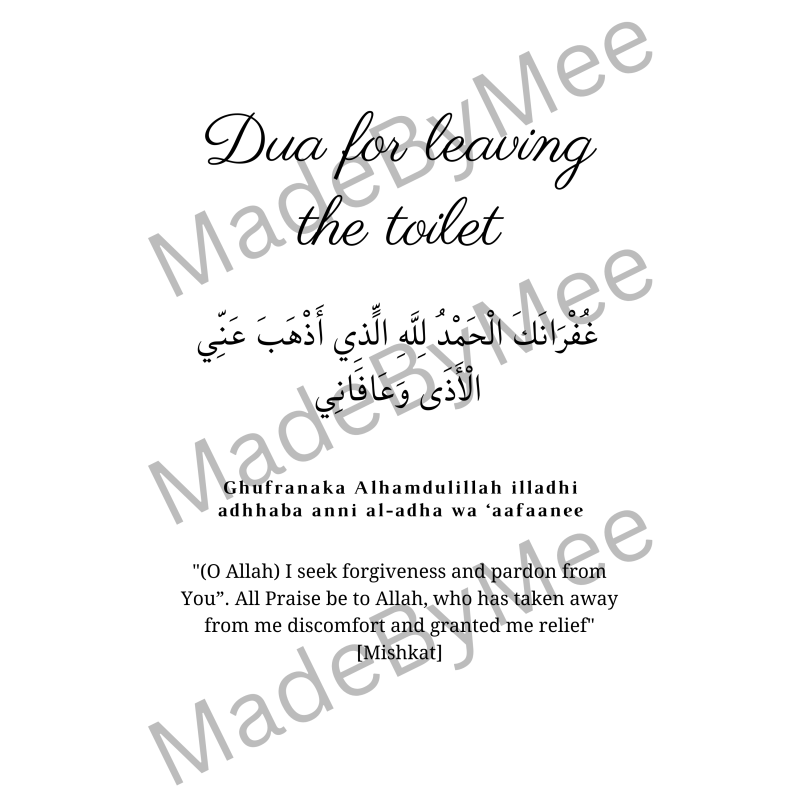 Dua for leaving
the toilet
غُفْرَانَكَ الْحَمْدُ لِلَّهِ الَّذِي أَذْهَبَ عَنِّي
الْأَذَى وَعَافَانِي
Ghufranaka Alhamdulillah illadhi
adhhaba anni al-adha wa ‘aafaanee
"(O Allah) I seek forgiveness and pardon from
You”. All Praise be to Allah, who has taken away
from me discomfort and granted me relief"
[Mishkat]
MadeByMee
MadeByMee
MadeByMee